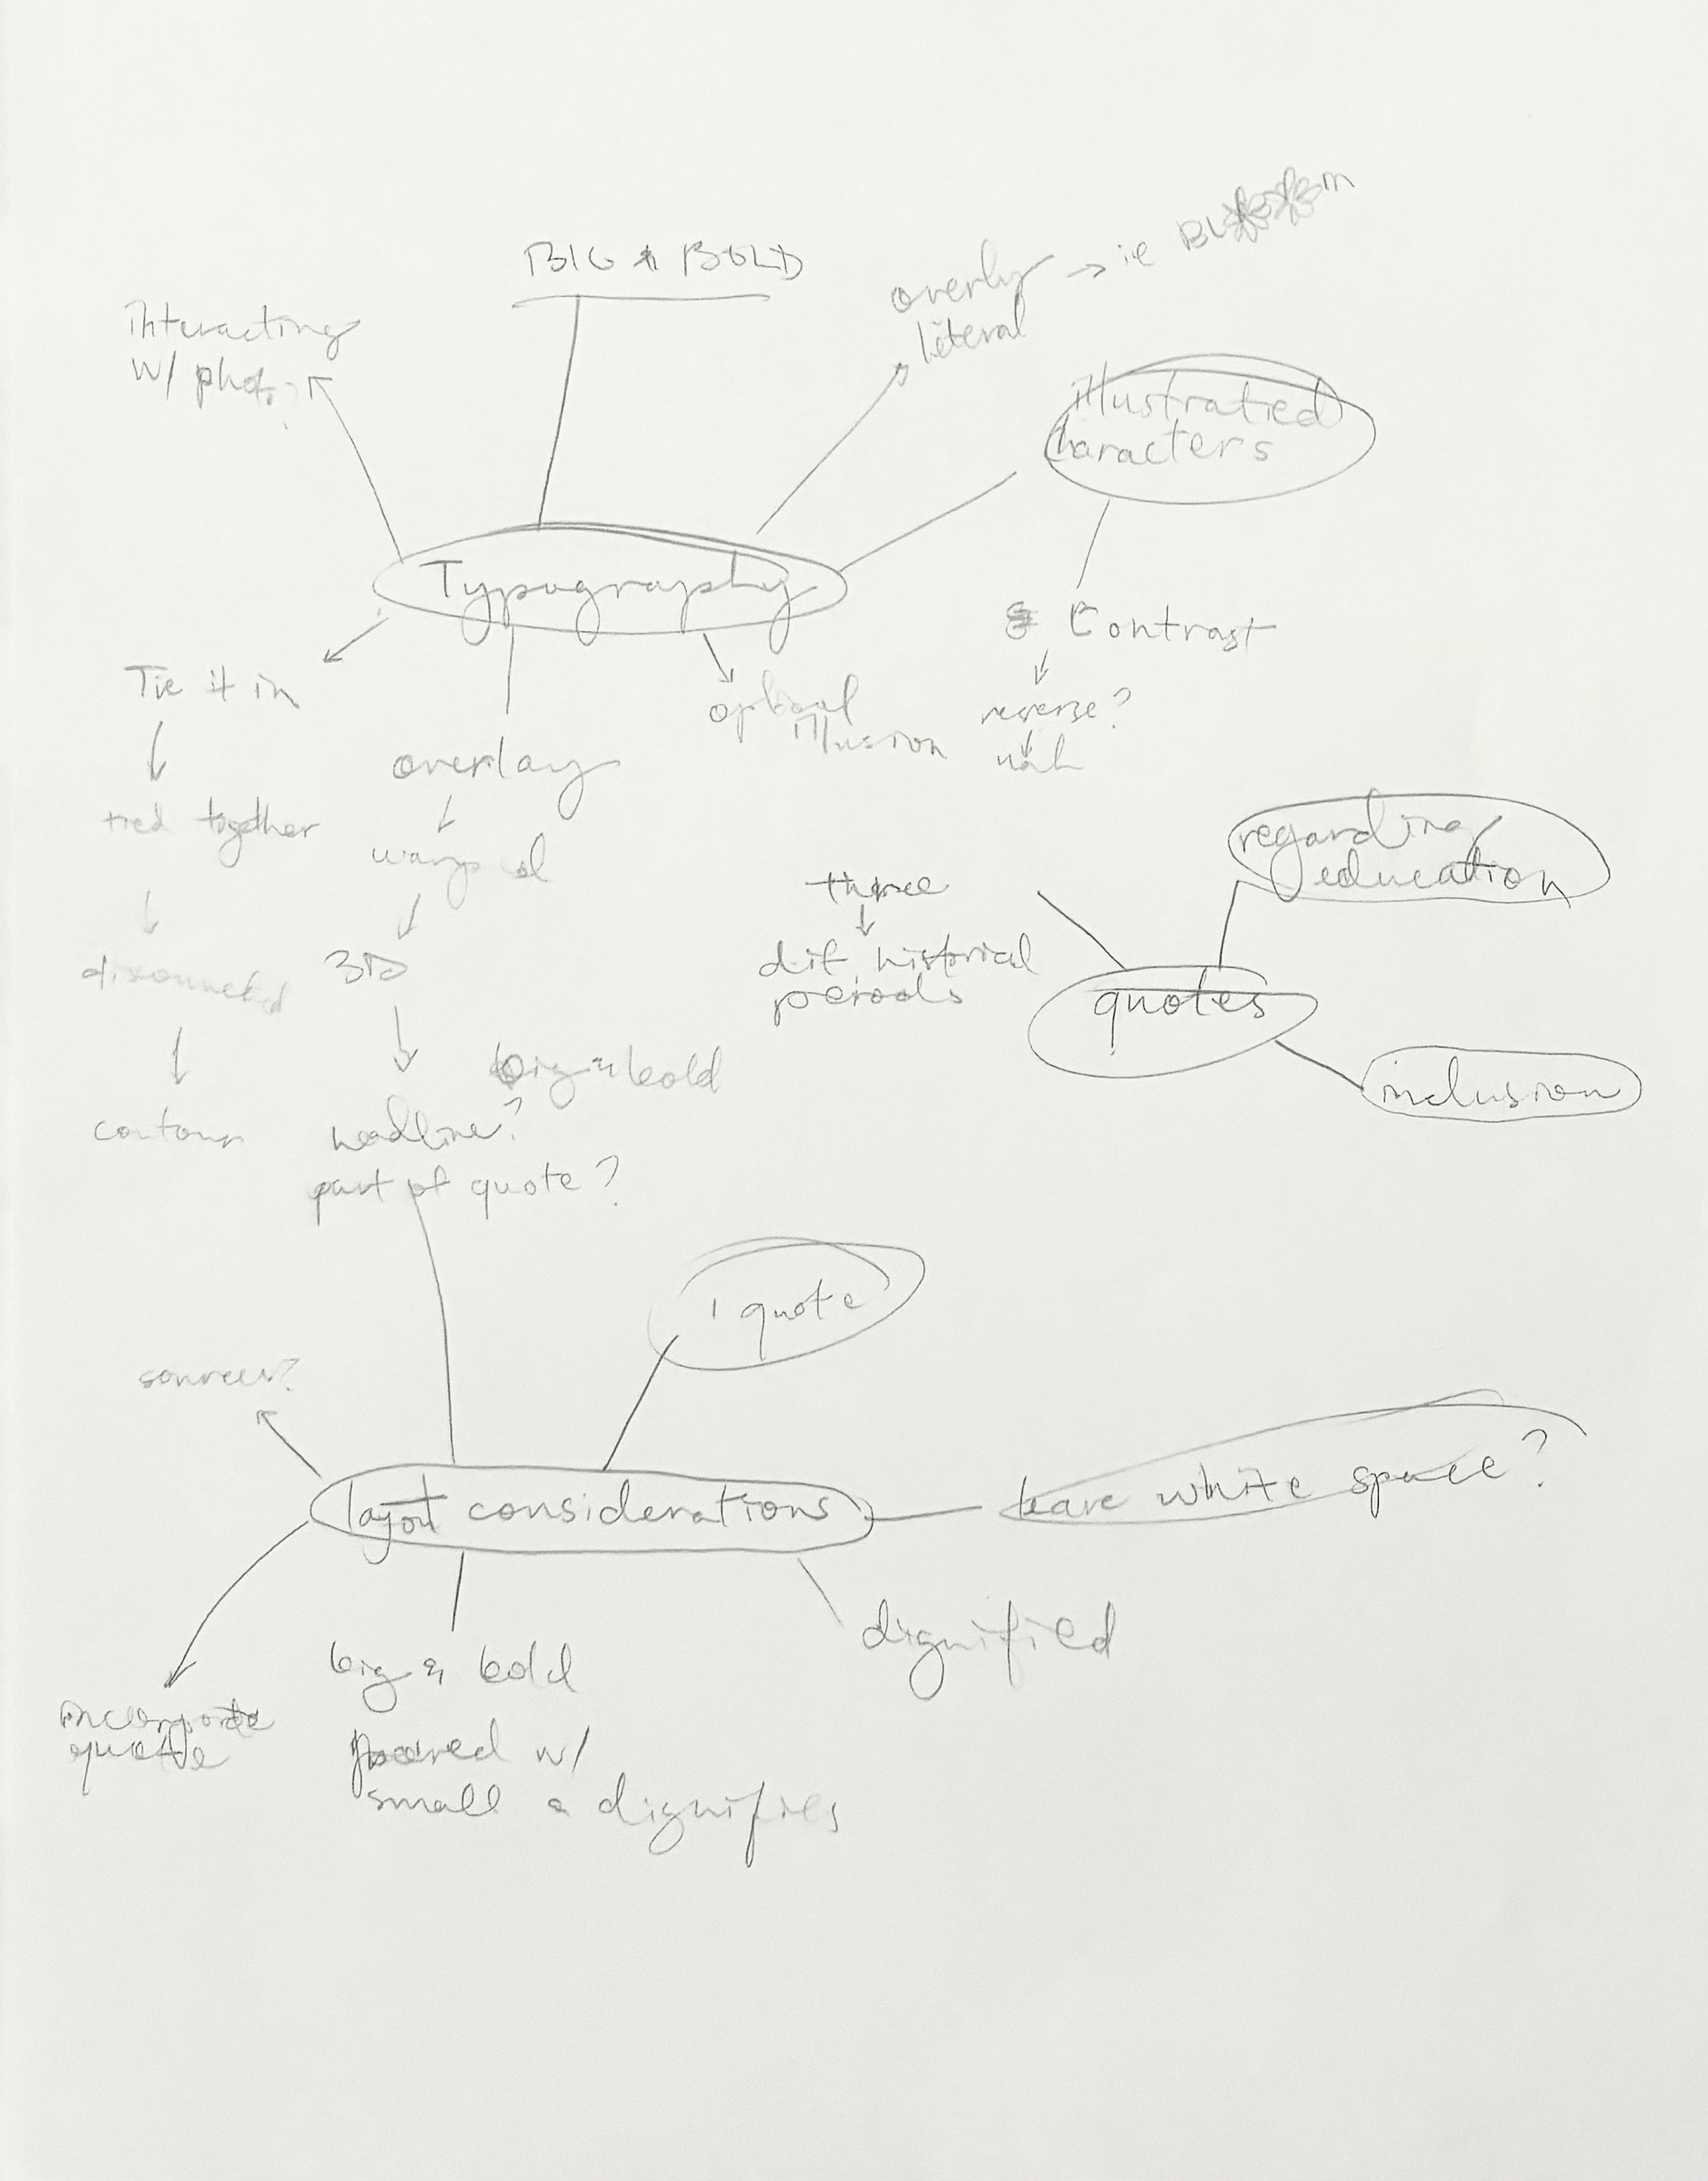 BIG & BOLD
overly → ie BLOOM
literal
interacting
w/ photo?
illustratied
characters
Typography
Contrast
reverse?
nah
Tie it in
optical
illusion
overlay
tied together
warped
regarding
education
three
dif historical
periods
disconnected
3D
quotes
big & bold
inclusion
contour
headline?
part of quote?
1 quote
sources?
layout considerations
leave white space?
dignified
big & bold
incorporate
quote
paired w/
small & dignifies